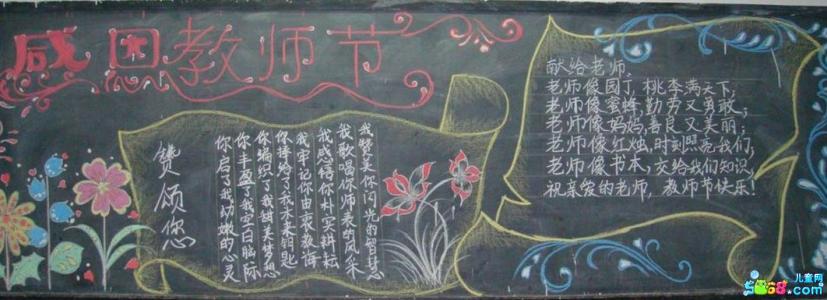 感恩教师节
赞颂您
我赞美你闪光的智慧
我歌唱你师表的风采
我感悟你朴实耕耘
我牢记你由衷教诲
你捧给了我未来钥匙
你编织了我甜美梦想
你丰盈了我空白脑际
你启了我幼嫩的心灵
献给老师,
老师像园丁,桃李满天下;
老师像蜜蜂,勤劳又勇敢;
老师像妈妈,善良又美丽;
老师像红烛,时刻照亮我们;
老师像书本,交给我们知识,
祝亲爱的老师,教师节快乐!
儿童网
5068.com